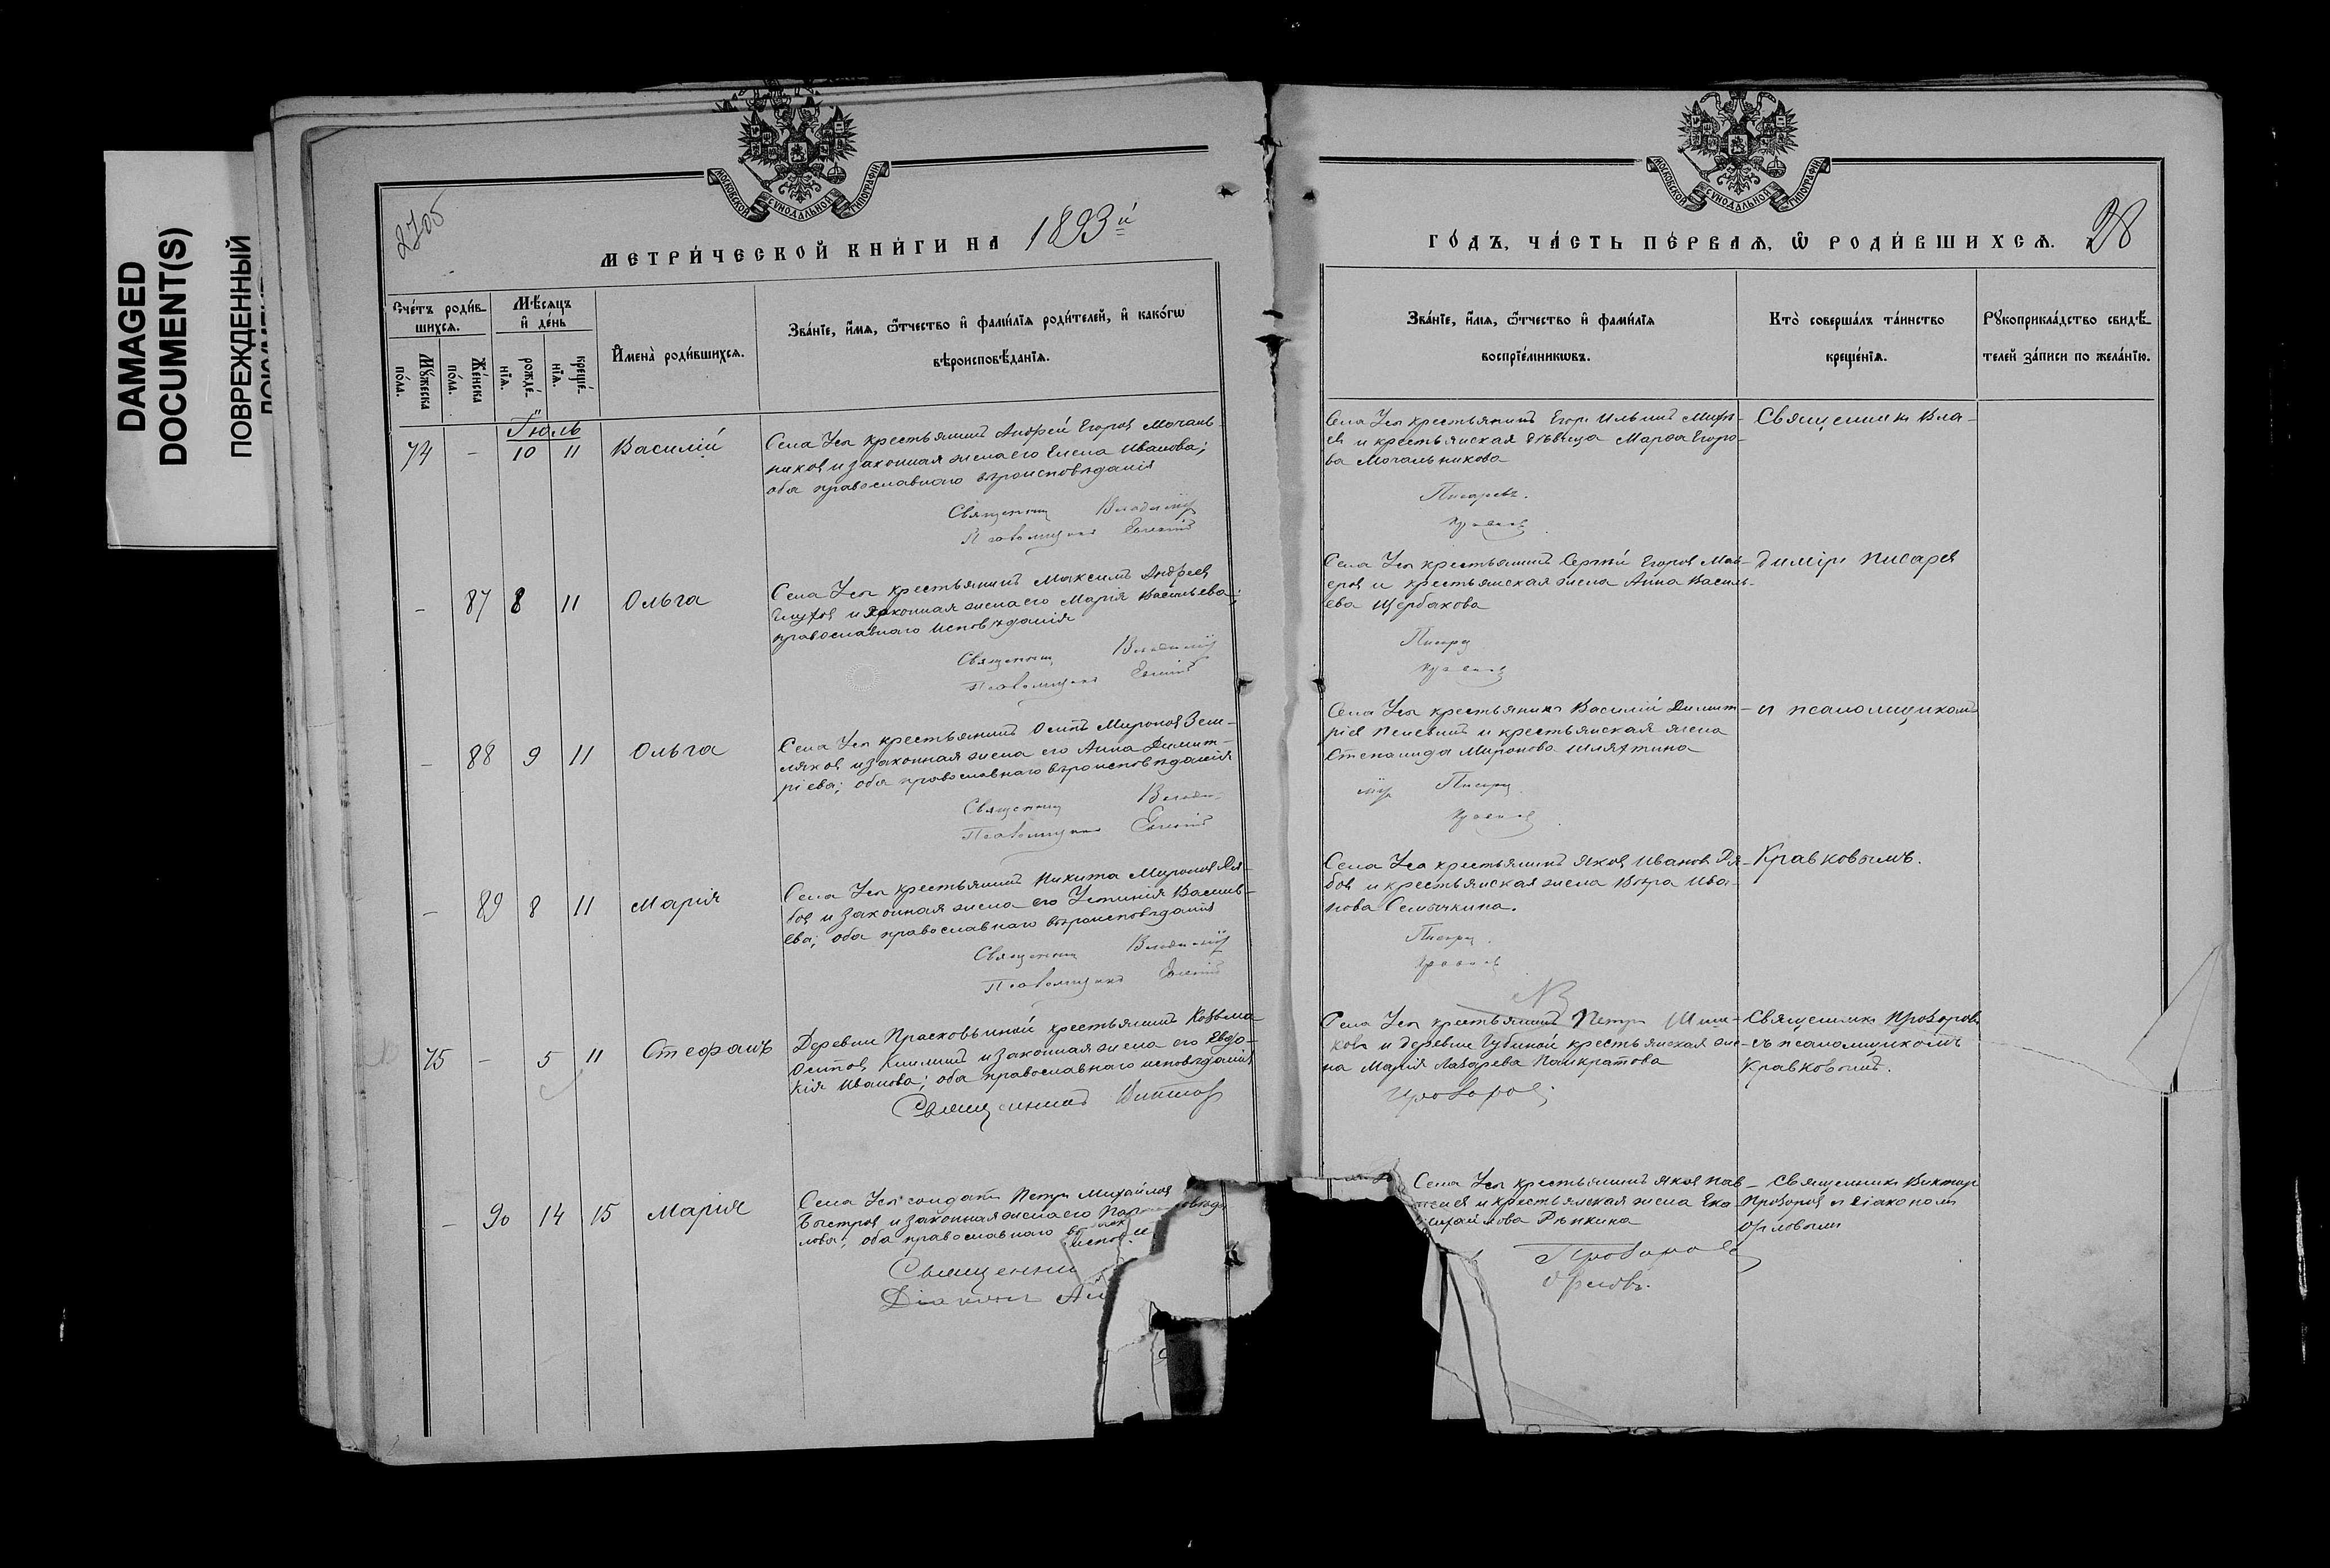 DAMAGED
DOCUMENT(S)
ПОВРЕЖДЕННЫЙ
МОСКОВСКОЙ СѴНОДАЛЬНОЙ ТИПОГРАФІИ
2705
МЕТРИ́ЧЕСКОЙ КНИ́ГИ НА 1893й
Сче́тъ роди́в-
шихсѧ.
Мѣ́сѧцъ
и҆ де́нь
Мꙋ́жеска
по́ла.
Же́нска
по́ла.
рожде́-
нїѧ.
креще́-
нїѧ.
И҆мена̀ роди́вшихсѧ.
Зва́нїе, и҆́мѧ, ѻ҆́тчество и҆ фами́лїѧ роди́телей, и҆ како́гѡ
вѣроисповѣ́данїѧ.
Іюль
74 - 10 11 Василій
Села Усы крестьянинъ Андрей Егоровъ Мочаль-
никовъ и законная жена его Елена Иванова;
оба православнаго вѣроисповѣданія
Священникъ Владиміръ
Псаломщикъ Евгеній
- 87 8 11 Ольга
Села Усы крестьянинъ Максимъ Андреевъ
и законная жена его Марія Васильева;
православнаго исповѣданія
Священникъ Владиміръ
Псаломщикъ Евгеній
- 88 9 11 Ольга
Села Усы крестьянинъ Осипъ Мироновъ Зем-
ляковъ и законная жена его Анна Димит-
ріева; оба православнаго вѣроисповѣданія
Священникъ Влади-
Псаломщикъ Евгеній
- 89 8 11 Марія
Села Усы крестьянинъ Никита Мироновъ Ря-
бовъ и законная жена его Устинія Василь-
ева; оба православнаго вѣроисповѣданія
Священникъ Владиміръ
Псаломщикъ Евгеній
75 - 5 11 Стефанъ
Деревни Прасковьиной крестьянинъ Козьма
Осиповъ и законная жена его Евдо-
кія Иванова; оба православнаго исповѣданія
Священникъ Викторъ
- 90 14 15 Марія
Села Усы солдатъ Петръ Михайловъ
Быстровъ и законная жена его
лова; оба православнаго
Священни
Діаконъ
ГО́ДЪ, ЧА́СТЬ ПЕ́РВАѦ, Ѡ҆ РОДИ́ВШИХСѦ. 28
Зва́нїе, и҆́мѧ, ѻ҆́тчество и҆ фами́лїѧ
воспрїе́мникѡвъ.
Кто̀ соверша́лъ та́инство
креще́нїѧ.
Рꙋкоприкла́дство свидѣ́-
телей за́писи по жела́нїю.
Села Усы крестьянинъ Егоръ Ильинъ
и крестьянская дѣвица Марѳа Егоро-
ва Мочальникова
Писаревъ.
Кравковъ
Священникъ Вла-
Села Усы крестьянинъ Сергѣй Егоровъ
и крестьянская жена Анна Василь-
ева Щербакова
Писаревъ
Кравковъ
диміръ Писаревъ
Села Усы крестьянинъ Василій Димит-
ріевъ и крестьянская жена
Степанида Миронова Шляхтина
міръ Писаревъ
Кравковъ
и псаломщикомъ
Села Уса крестьянинъ Яковъ Ивановъ Ря-
бовъ и крестьянская жена Вѣра Ива-
нова Семычкина.
Писаревъ.
Кравковъ
Кравковымъ.
NB
Села Усы крестьянинъ Петръ Шиш-
ковъ и деревни Губиной крестьянская же-
на Марія Лазарева Панкратова
Прозоровъ
Священникъ Прозоровъ
съ псаломщикомъ
Кравковымъ.
Села Усы крестьянинъ Яковъ Пав
и крестьянская жена Ека-
Михайлова Рѣпкина
Прозоровъ
Орловъ.
Священникъ Викторъ
Прозоровъ и діакономъ
Орловымъ